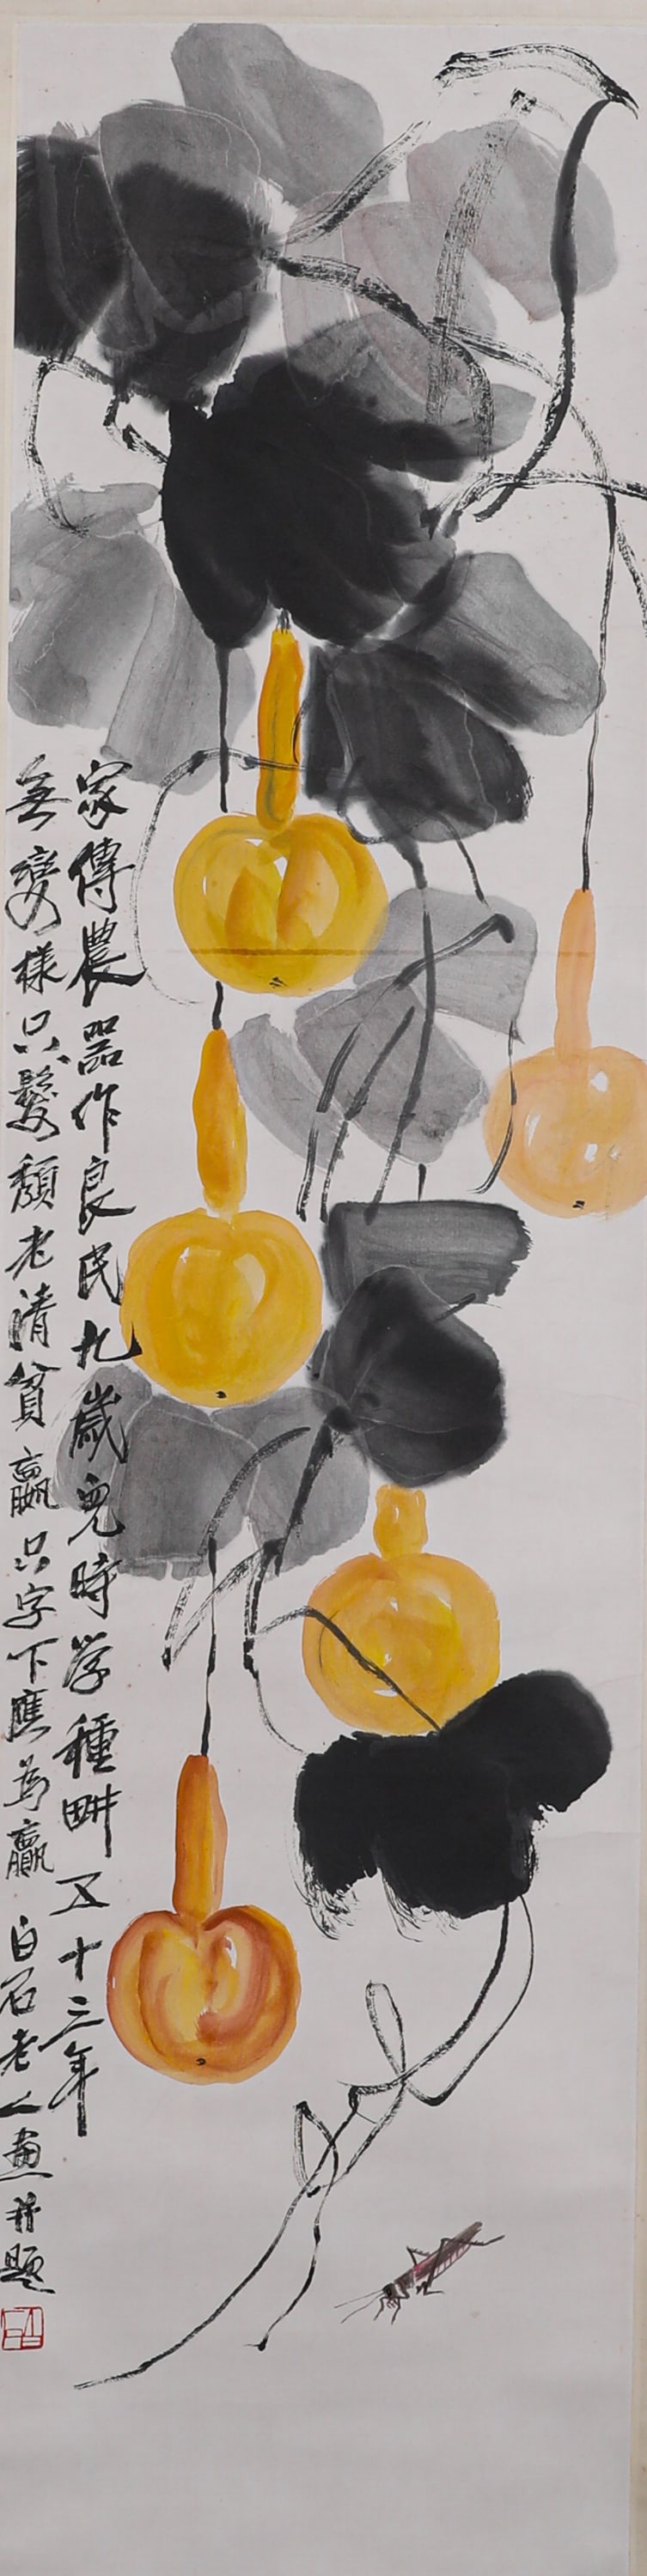 家傳農器作良民九歲兒時學種畊五十三年
無變樣只餘鬚髮老清貧羸只字下應為贏 白石老人畫并題
白石